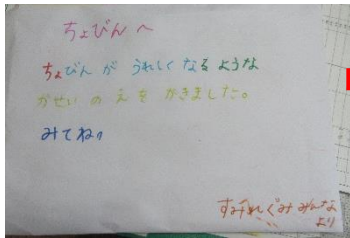 ちょびんへ
ちょびんがうれしくなるような
かせいのえをかきました。
みてね。
すみれぐみみんな
より